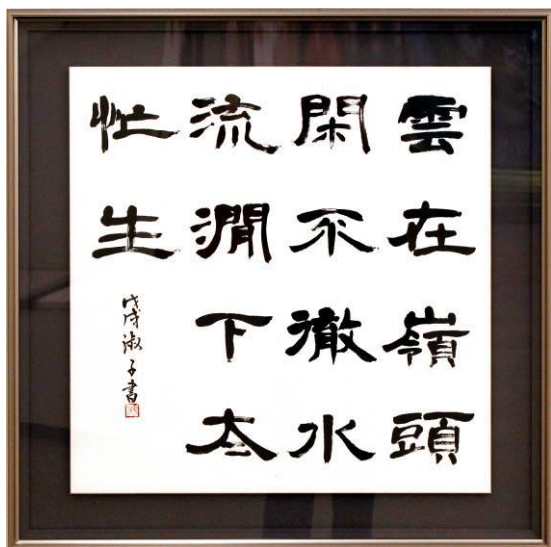 雲在嶺頭
閑不徹水
流澗下太
忙生
戊戌淑子書